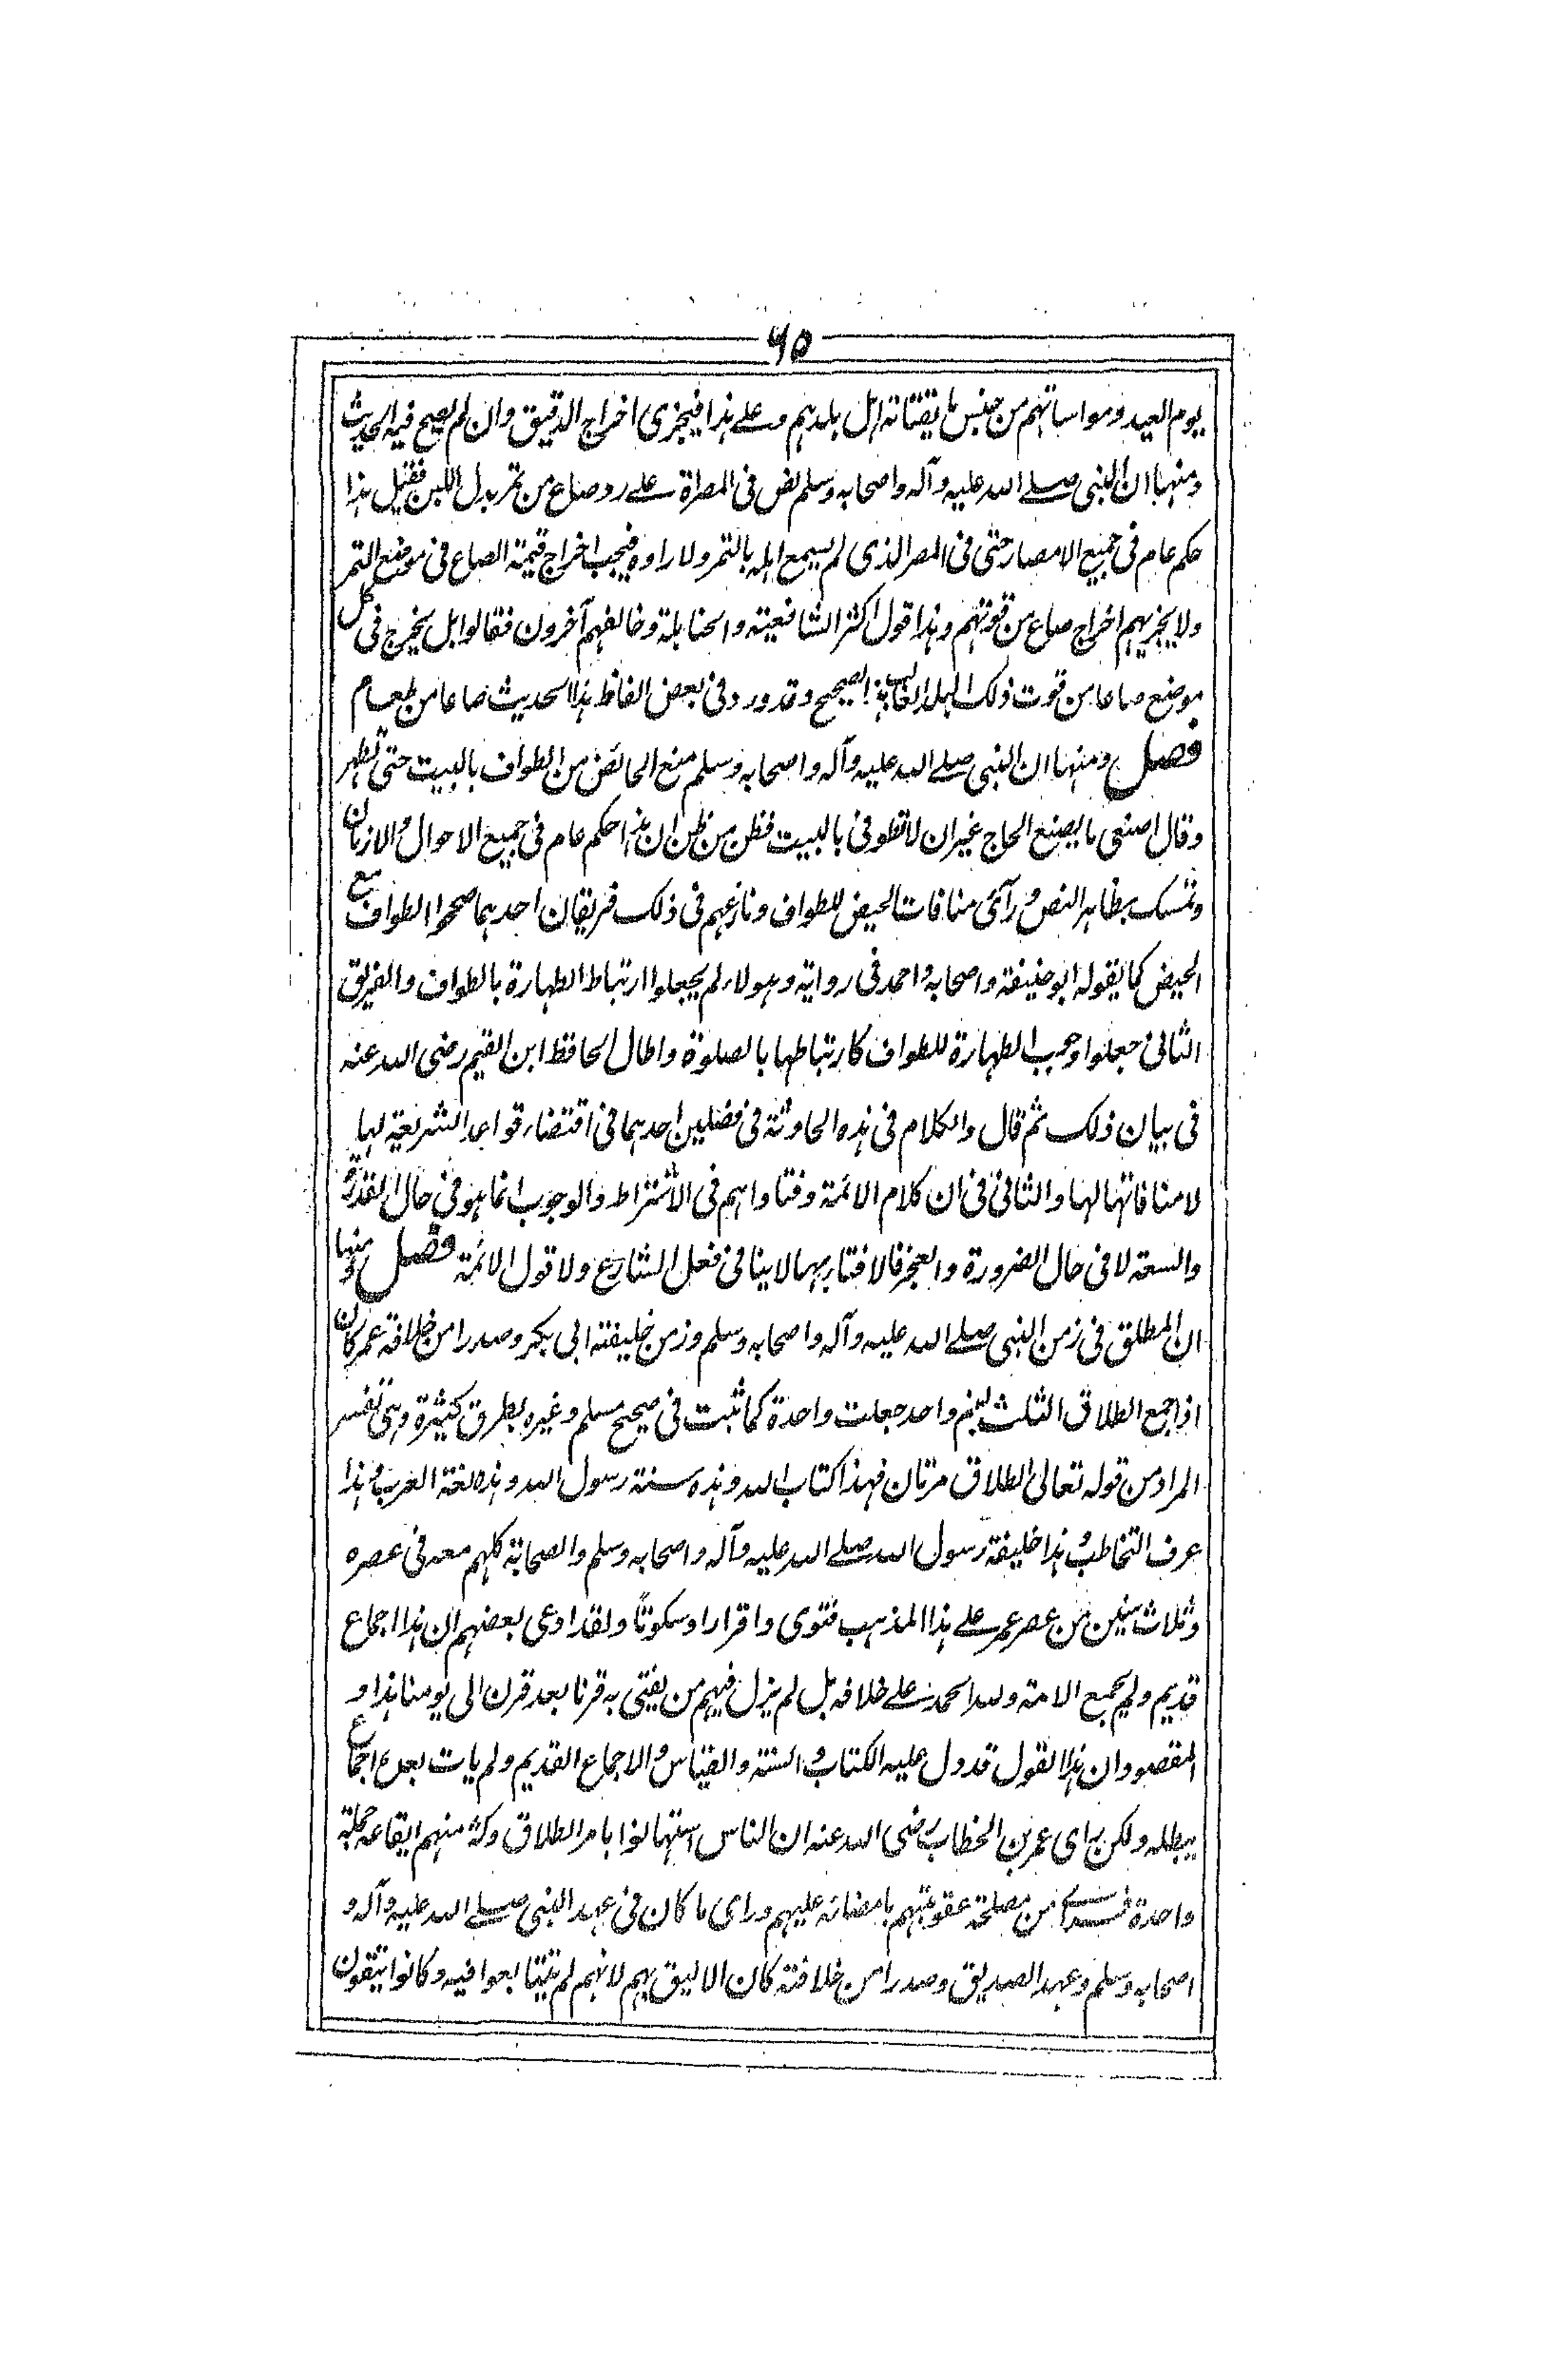 ٦٥
يوم العيد ومواساتهم من جنس ما يقتاته اهل بلدهم وعلے هذا فيجزی اخراج الدقيق وان لم يصح فيه الحديث
ومنها ان النبی صلے الله عليه وآله واصحابه وسلم نص فی المصراة علے رد صاع من تمر بدل اللبن فقيل هذا
حكم عام فی جميع الامصار حتی فی المصر الذی لم يسمع اهله بالتمر ولا راوه فيجب اخراج قيمة الصاع فی موضع التمر
ولا يجزيهم اخراج صاع من قوتهم وهذا قول اكثر الشافعية والحنابلة وخالفهم آخرون فقالوا بل يخرج فی كل
موضع صاعا من قوت ذلك البلد الغالب هذا الصحيح وقد ورد فی بعض الفاظ هذا الحديث صاعا من طعام
فصل ومنها ان النبی صلے الله عليه وآله واصحابه وسلم منع الحائض من الطواف بالبيت حتی تطهر
وقال اصنعی ما يصنع الحاج غير ان لا تطوفی بالبيت فظن من ظن ان هذا حكم عام فی جميع الاحوال والازمان
وتمسك بظاهر النص ورآی منافات الحيض للطواف ونازعهم فی ذلك فريقان احدهما صححوا الطواف مع
الحيض كما يقوله ابو حنيفة واصحابه واحمد فی رواية وهولاء لم يجعلوا ارتباط الطهارة بالطواف والفريق
الثانی جعلوا وجوب الطهارة للطواف كارتباطها بالصلوة واطال الحافظ ابن القيم رضی الله عنه
فی بيان ذلك ثم قال والكلام فی هذه الحادثة فی فصلين احدهما فی اقتضاء قواعد الشريعة لها
لا منافاتها لها والثانی فی ان كلام الائمة وفتاواهم فی الاشتراط والوجوب انما هو فی حال القدرة
والسعة لا فی حال الضرورة والعجز فالافتاء بهما لا ينافی فعل الشارع ولا قول الائمة فصل ومنها
ان المطلق فی زمن النبی صلے الله عليه وآله واصحابه وسلم وزمن خليفته ابی بكر وصدرا من خلافة عمر كان
اذا جمع الطلاق الثلث بفم واحد جعلت واحدة كما ثبت فی صحيح مسلم وغيره بطرق كثيرة وهی تفسر
المراد من قوله تعالی الطلاق مرتان فهذا كتاب الله وهذه سنة رسول الله وهذه لغة العرب وهذا
عرف التخاطب وهذا خليفة رسول الله صلے الله عليه وآله واصحابه وسلم والصحابة كلهم معه فی عصره
وثلاث سنين من عصر عمر علے هذا المذهب فتوی واقرارا وسكوتاً ولقد ادعی بعضهم ان هذا اجماع
قديم ولم يجمع الامة ولله الحمد علے خلافه بل لم يزل فيهم من يفتی به قرنا بعد قرن الی يومنا هذا و
المقصود ان هذا القول قد دل عليه الكتاب والسنة والقياس والاجماع القديم ولم يات بعده اجماع
يبطله ولكن رای عمر بن الخطاب رضی الله عنه ان الناس استهانوا بامر الطلاق وكثر منهم ايقاعه جملة
واحدة من مصلحة عقوبتهم بامضائه عليهم ورای ما كان فی عهد النبی صلے الله عليه وآله و
اصحابه وسلم وعهد الصديق وصدرا من خلافته كان الاليق بهم لانهم لم يتتابعوا فيه وكانوا يتقون